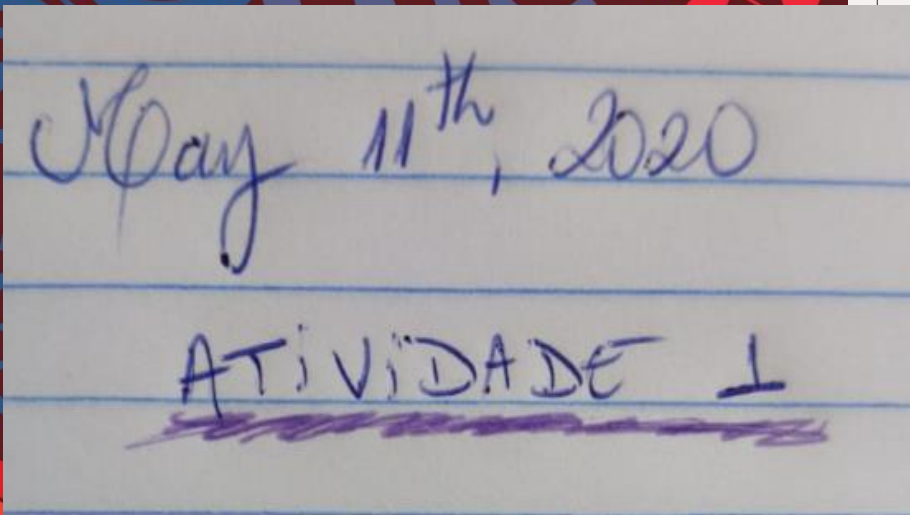 May 11th, 2020
ATiViDADE 1